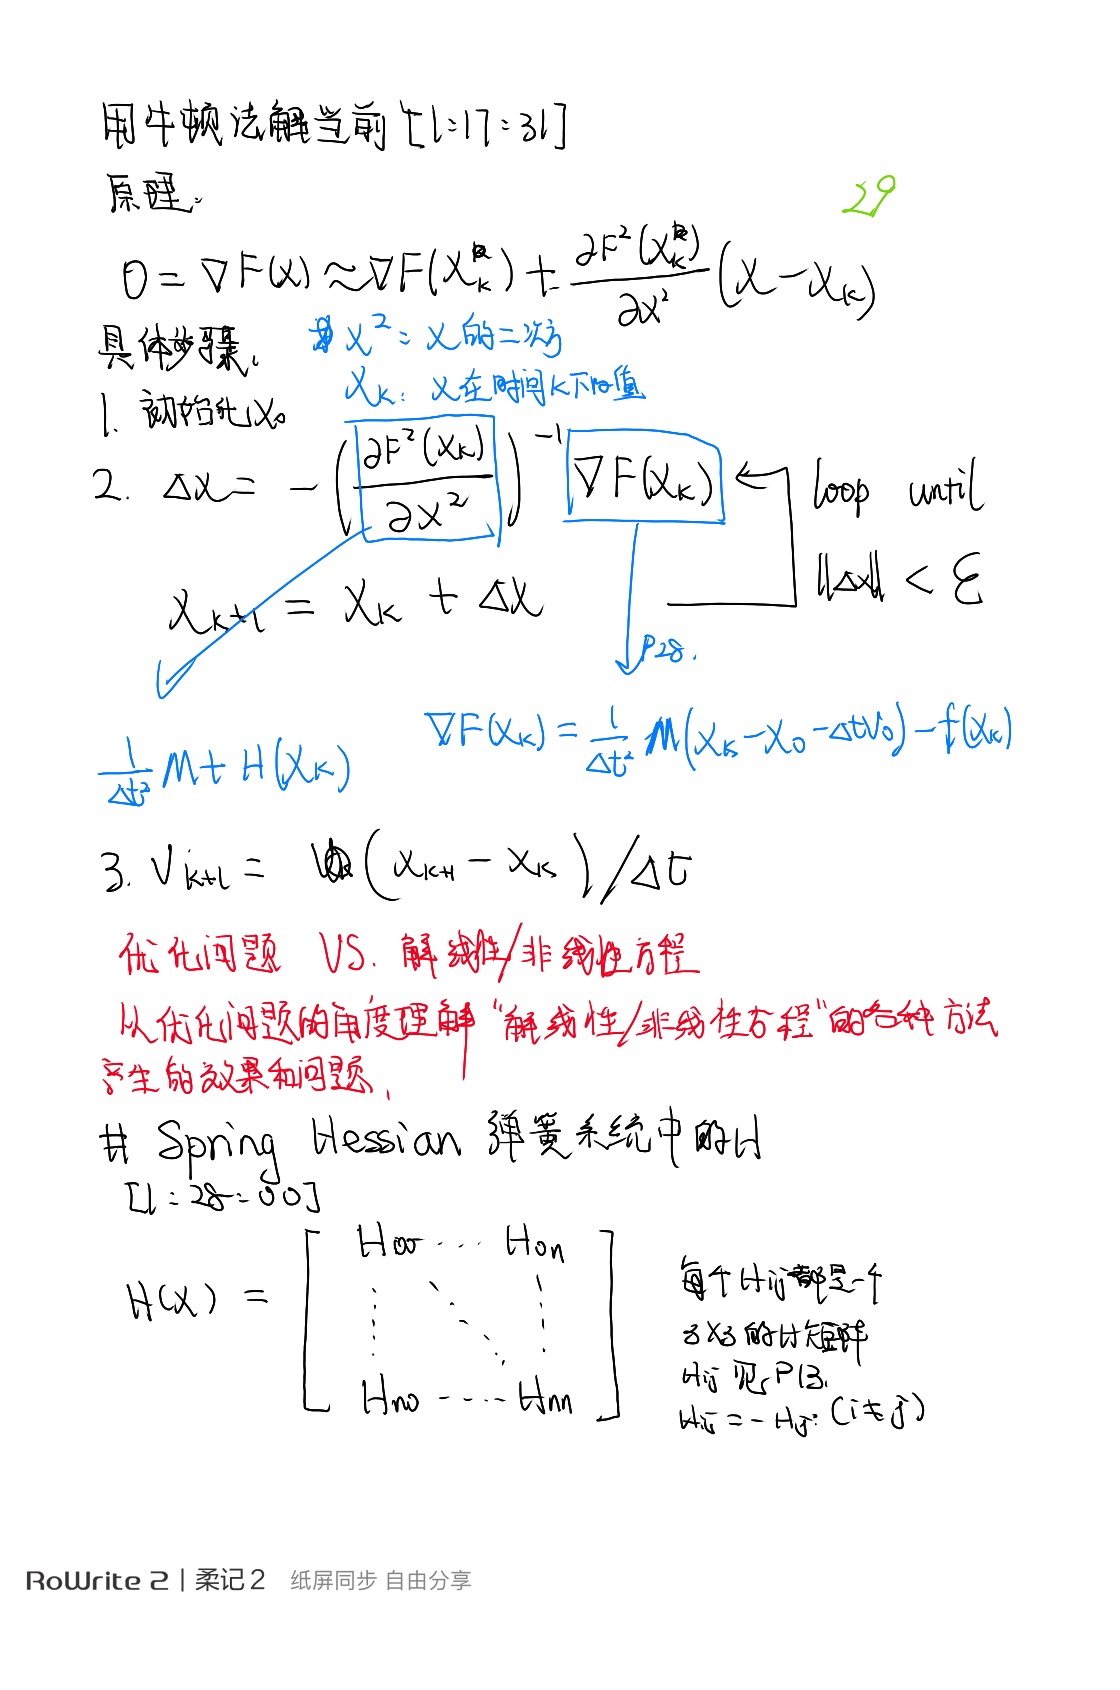 用牛顿法解当前 [1:17:31]
原理:
29
0 = ∇F(x) ≈ ∇F(x_k) + ∂F²(x_k)/∂x² (x - x_k)
具体步骤.
x²: x的二次方
x_k: x在时间k下的值
1. 初始化x₀
2. Δx = -(∂F²(x_k)/∂x²)⁻¹ ∇F(x_k)
loop until
‖Δx‖ < ε
x_{k+1} = x_k + Δx
P28.
∇F(x_k) = 1/Δt² M(x_k - x_0 - Δt v_0) - f(x_k)
1/Δt² M + H(x_k)
3. V_{k+1} = (x_{k+1} - x_k)/Δt
优化问题 VS. 解线性/非线性方程
从优化问题的角度理解“解线性/非线性方程”的各种方法
产生的效果和问题.
# Spring Hessian 弹簧系统中的H
[1:28:00]
H₀₀ ···· H₀ₙ
H(x) =
Hₙ₀ ····· Hₙₙ
每个Hij都是一个
3x3的H矩阵
Hij 见P13.
Hij = - Hji (i≠j)
RoWrite 2 | 柔记 2 纸屏同步 自由分享